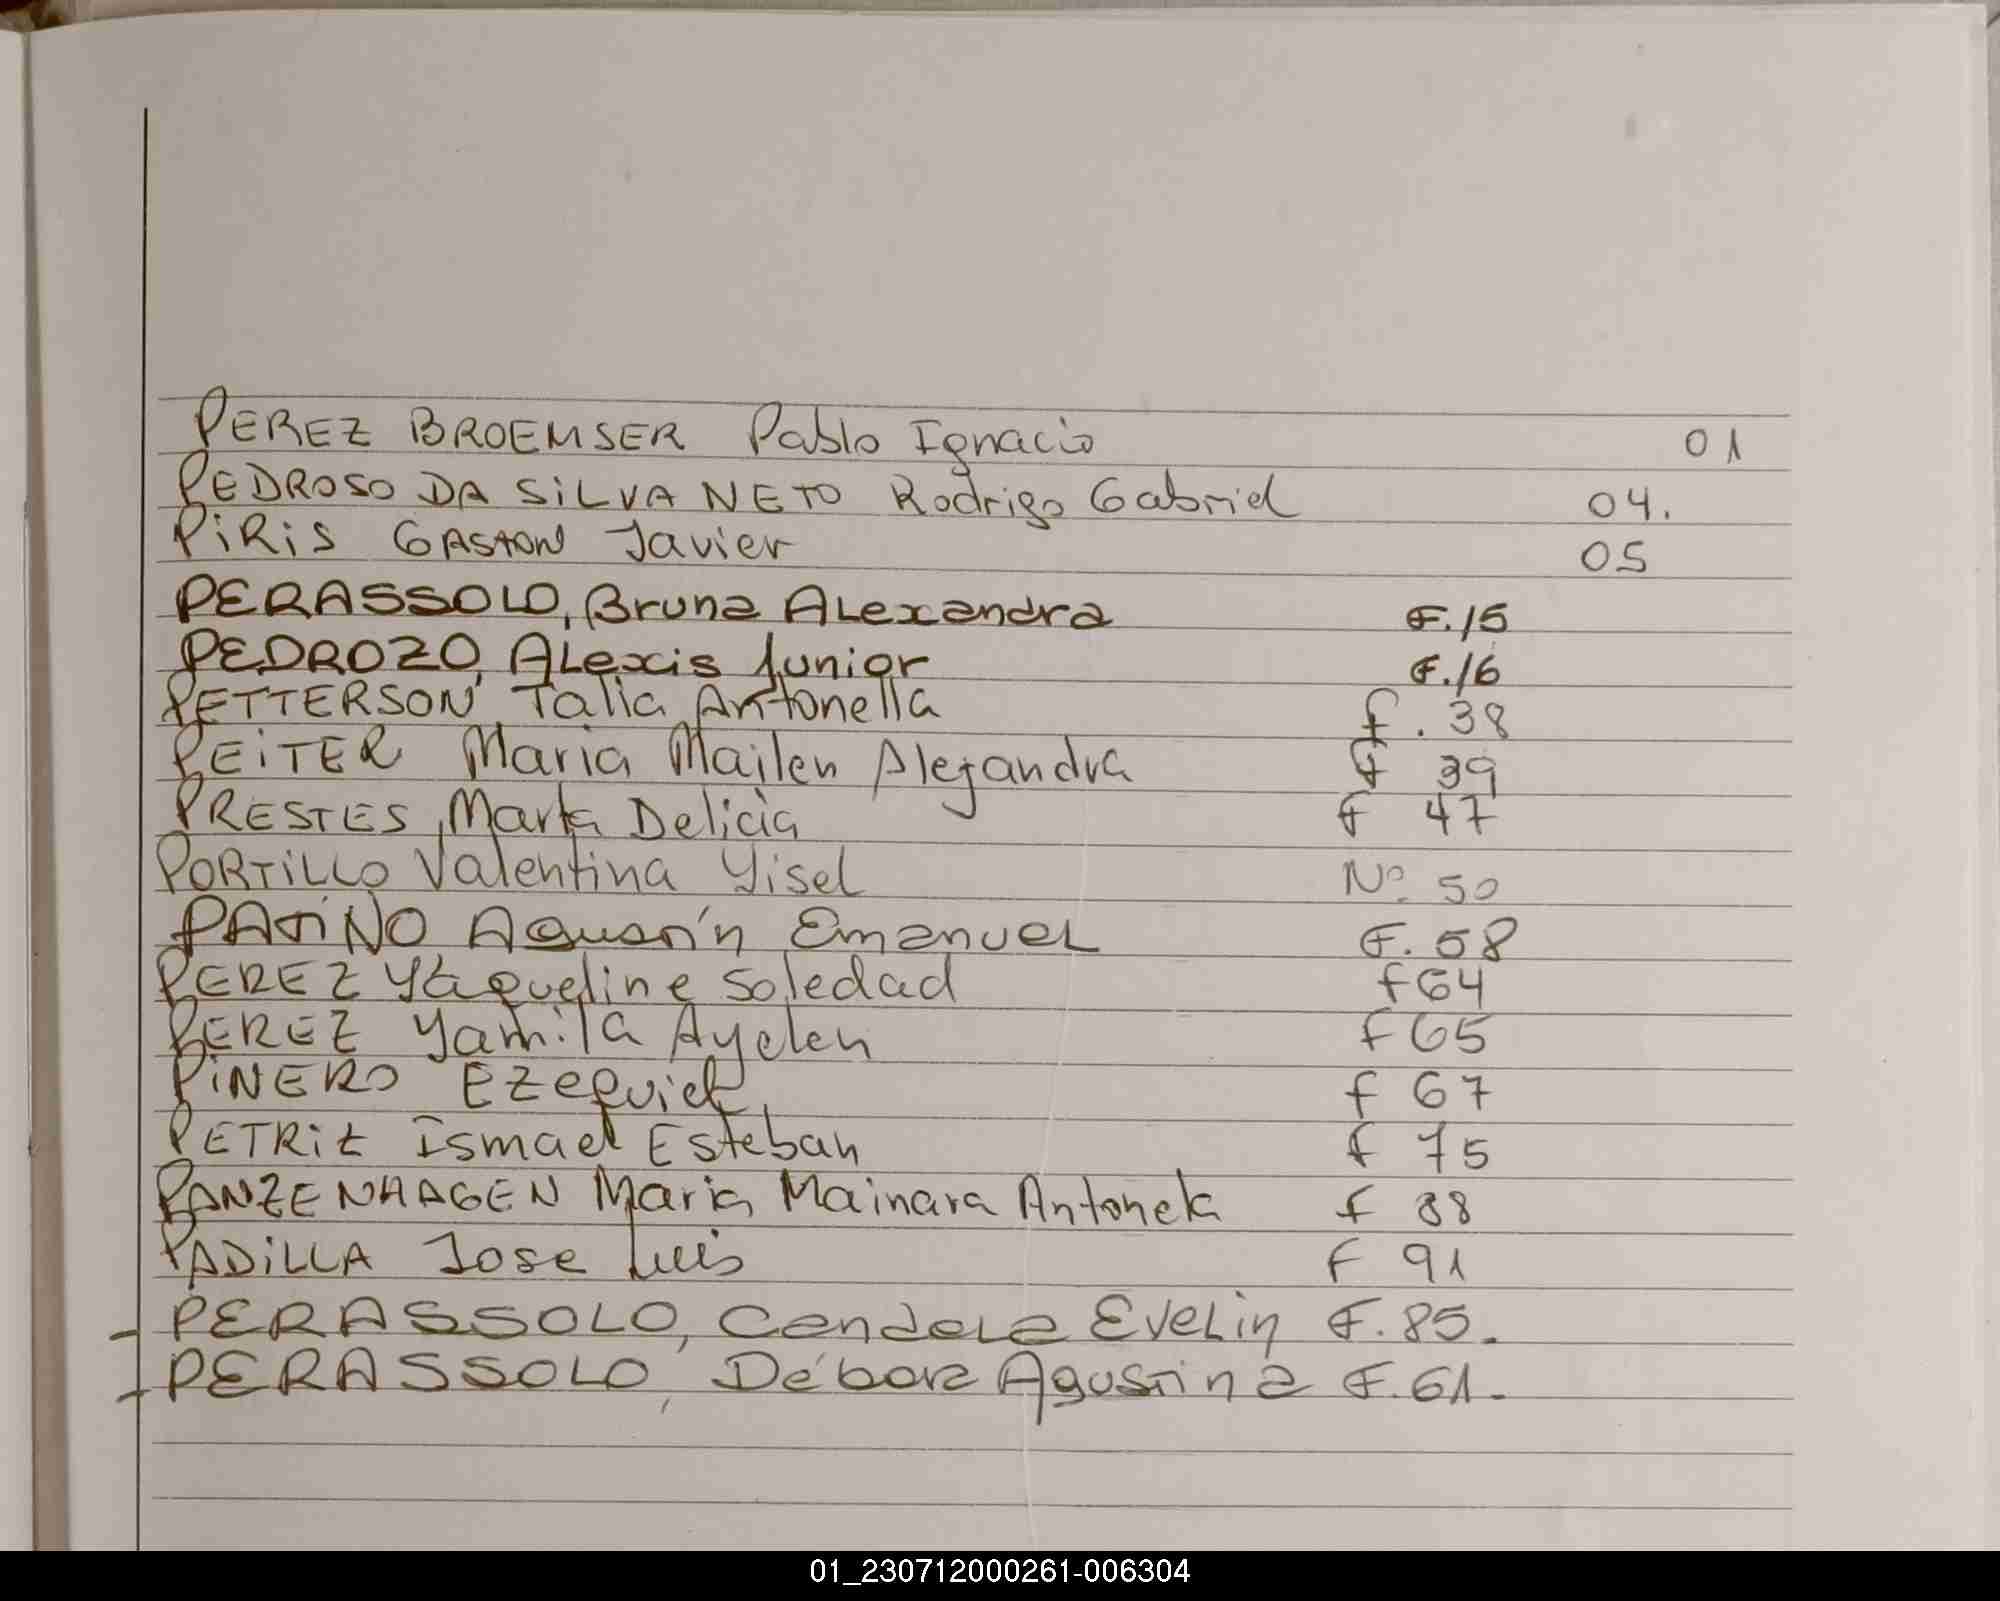 PEREZ BROEMSER Pablo Ignacio 01
PEDROSO DA SILVA NETO Rodrigo Gabriel 04.
PIRIS GASTON Javier 05
PERASSOLO, Bruna Alexandra F.15
PEDROZO, Alexis Junior F.16
PETTERSON, Talia Antonella f. 38
PEITER Maria Mailen Alejandra f 39
PRESTES, Marta Delicia f 47
PORTILLO Valentina Yisel Nº 50
PATIÑO Agustín Emanuel F. 58
PEREZ Yaqueline Soledad f 64
PEREZ Yamila Ayelen f 65
PINERO Ezequiel f 67
PETRIZ Ismael Esteban f 75
PANZENHAGEN Maria Mainara Antonela f 88
PADILLA Jose Luis F 91
PERASSOLO, Candela Evelin F. 85.
PERASSOLO, Débora Agustina F. 61.
01_230712000261-006304